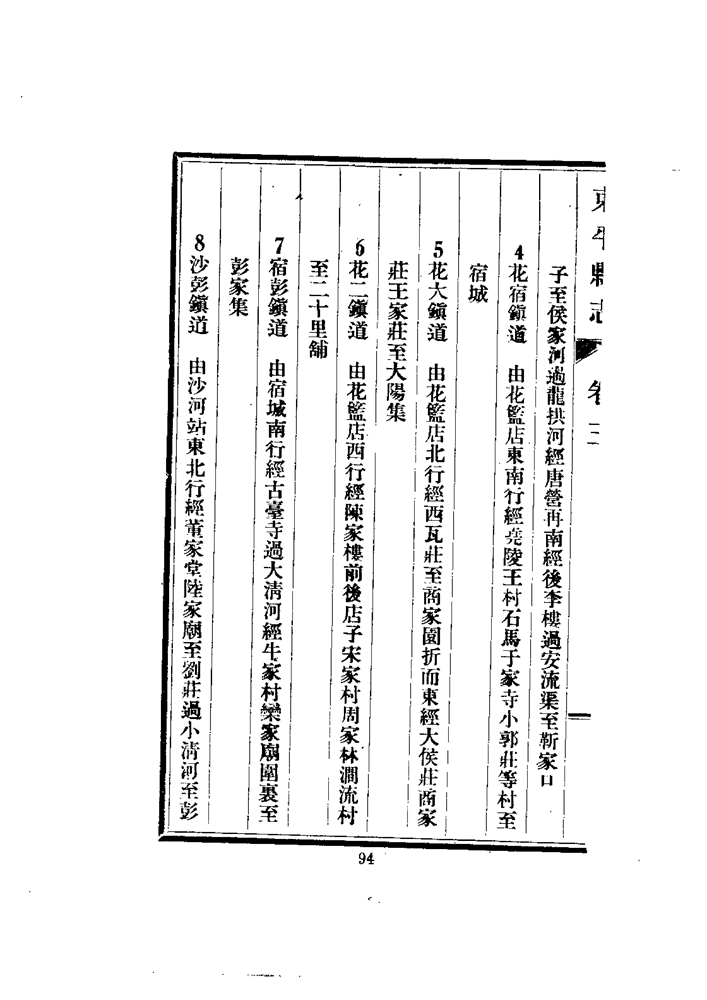 東平縣志 卷三
子至侯家河過龍拱河經唐營再南經後李樓過安流渠至靳家口
4花宿鎮道　由花籃店東南行經堯陵王村石馬于家寺小郭莊等村至
宿城
5花大鎮道　由花籃店北行經西瓦莊至商家園折而東經大侯莊商家
莊王家莊至大陽集
6花二鎮道　由花籃店西行經陳家樓前後店子宋家村周家林澗流村
至二十里舖
7宿彭鎮道　由宿城南行經古臺寺過大清河經牛家村欒家廟圍裏至
彭家集
8沙彭鎮道　由沙河站東北行經董家堂陸家廟至劉莊過小清河至彭
94